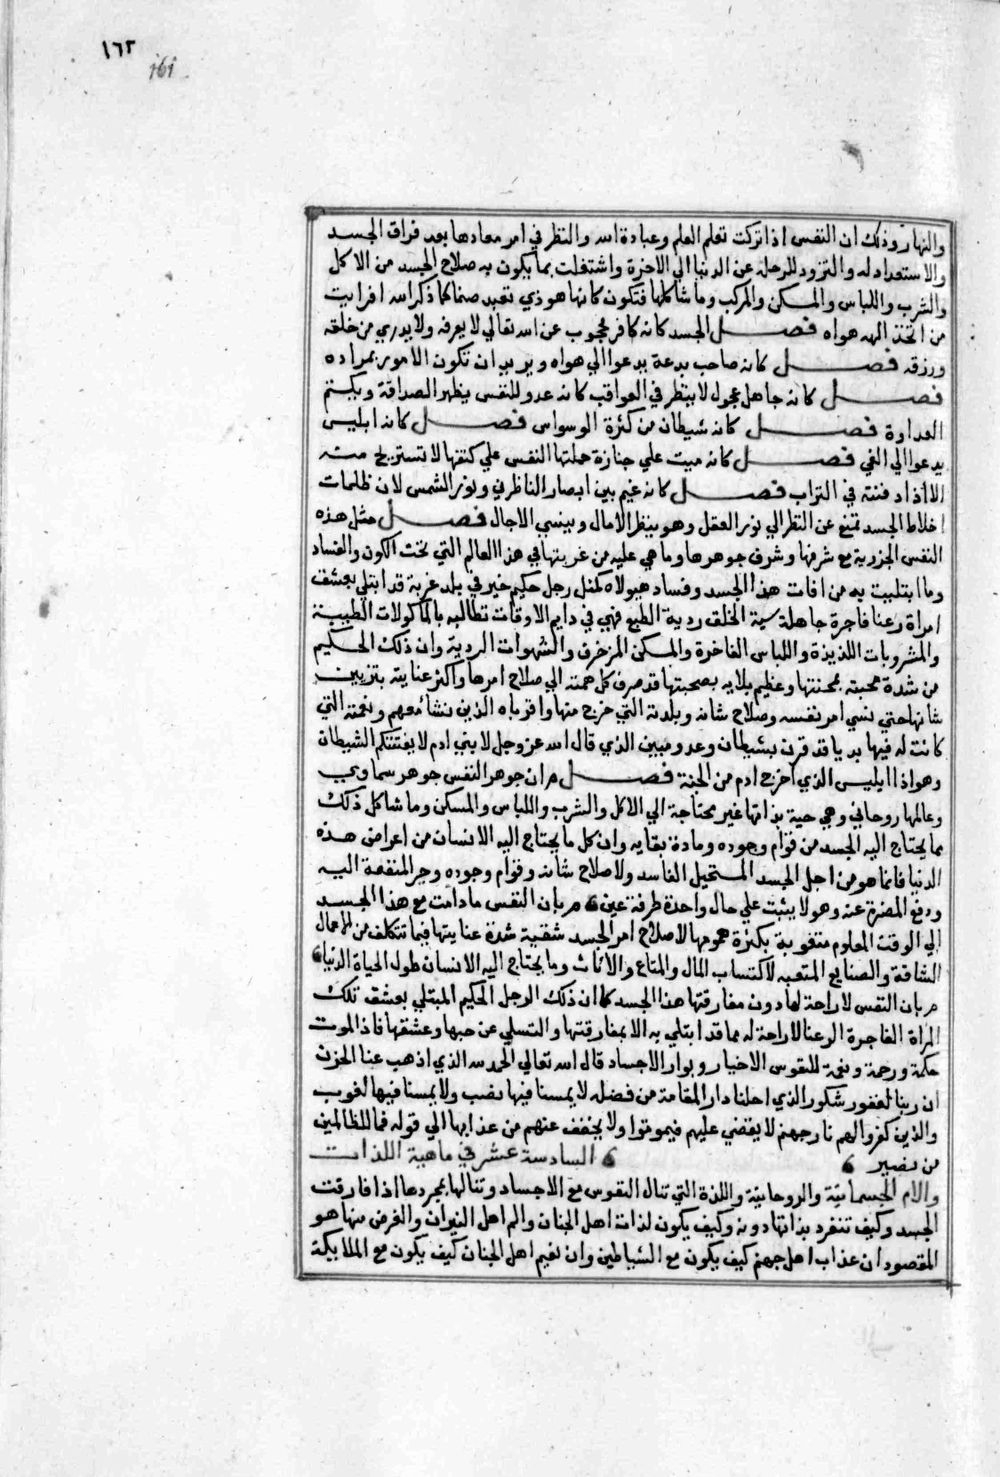 ١٦٢
161
والنهار وذلك ان النفس اذا تركت تعلم العلم وعبادة الله والنظر في امر معادها بعد فراق الجسد
والاستعداد له والتزود للرحلة عن الدنيا الي الاخرة واشتغلت بما يكون به صلاح الجسد من الاكل
والشرب واللباس والمسكن والمركب وما شاكلها فتكون كانها هوذي تعبد صنما كما ذكر الله افرايت
من اتخذ الهه هواه فصل الجسد كانه كافر محجوب عن الله تعالي لا يعرفه ولا يدري من خلقه
ورزقه فصل كانه صاحب بدعة يدعوا الي هواه ويريد ان تكون الامور بمراده
فصل كانه جاهل عجول لا ينظر في العواقب كانه عدو للنفس يظهر الصداقة ويكتم
العداوة فصل كانه شيطان من كثرة الوسواس فصل كانه ابليس
يدعوا الي الغي فصل كانه ميت علي جنازة حملتها النفس علي كتفها لا تستريح منه
الا اذا دفنته في التراب فصل كانه غيم بين ابصار الناظرين ونور الشمس لان ظلمات
اخلاط الجسد تمنع عن النظر الي نور العقل وهو ينظر الامال وينسي الاجال فصل مثل هذه
النفس الجزوية مع شرفها وشرف جوهرها وما هي عليه من غربتها في هذا العالم التي تحت الكون والفساد
وما ابتليت به من افات هذا الجسد وفساد هيولاه كمثل رجل حكيم خير في بلد غربة قد ابتلي بعشق
امراة رعنا فاجرة جاهلة سية الخلق ردية الطبع فهي في دايم الاوقات تطالبه بالماكولات الطيبة
والمشروبات اللذيذة واللباس الفاخرة والمسكن المزخرف والشهوات الردية وان ذلك الحكيم
من شدة محبته بمحنتها وعظيم بلايه بصحبتها قد صرف كل همته الي صلاح امرها واكثر عنايته بتزيين
شانها حتي نسي امر نفسه وصلاح شانه وبلدته التي خرج منها واقرباه الذين نشا معهم ونعمته التي
كانت له فيها بديا قد قرن بشيطان وعدو مبين الذي قال الله عز وجل لا بني ادم لا يفتننكم الشيطان
وهو اذا ابليس الذي اخرج ادم من الجنة فصل م ان جوهر النفس جوهر سماوي
وعالمها روحاني وهي حية بذاتها غير محتاجة الي الاكل والشرب واللباس والمسكن وما شاكل ذلك
مما يحتاج اليه الجسد من قوام وجوده ومادة بقايه وان كل ما يحتاج اليه الانسان من اعراض هذه
الدنيا فانما هو من اجل الجسد المستحيل الفاسد ولاصلاح شانه وقوام وجوده وجر المنفعة اليه
ودفع المضرة عنه وهو لا يثبت علي حال واحدة طرفة عين م بان النفس ما دامت مع هذا الجسد
الي الوقت المعلوم متعوبة بكثرة همومها لاصلاح امر الجسد شقية شدة عنايتها فيما تتكلف من الاعمال
الشاقة والصنايع المتعبه لاكتساب المال والمتاع والاثاث وما يحتاج اليه الانسان طول الحياة الدنيا
م بان النفس لا راحة لها دون مفارقتها هذا الجسد كما ان ذلك الرجل الحكيم المبتلي بعشق تلك
المراة الفاجرة الرعنا لا راحة له مما قد ابتلي به الا بمفارقتها والتسلي عن حبها وعشقها فاذا الموت
حكمة ورحمة ونعمة للنفوس الاخيار وبوار الاجساد قال الله تعالي الحمد لله الذي اذهب عنا الحزن
ان ربنا لغفور شكور الذي احلنا دار المقامة من فضله لا يمسنا فيها نصب ولا يمسنا فيها لغوب
والذين كفروا لهم نار جهنم لا يقضي عليهم فيموتوا ولا يخفف عنهم من عذابها الي قوله فما للظالمين
من نصير السادسة عشر في ماهية اللذات
والالام الجسمانية والروحانية واللذة التي تنال النفوس مع الاجساد وتنالها بمجردها اذا فارقت
الجسد وكيف تنفرد بذاتها دونه وكيف يكون لذات اهل الجنان والم اهل النيران والغرض منها هو
المقصود ان عذاب اهل جهنم كيف يكون مع الشياطين وان نعيم اهل الجنان كيف يكون مع الملايكة